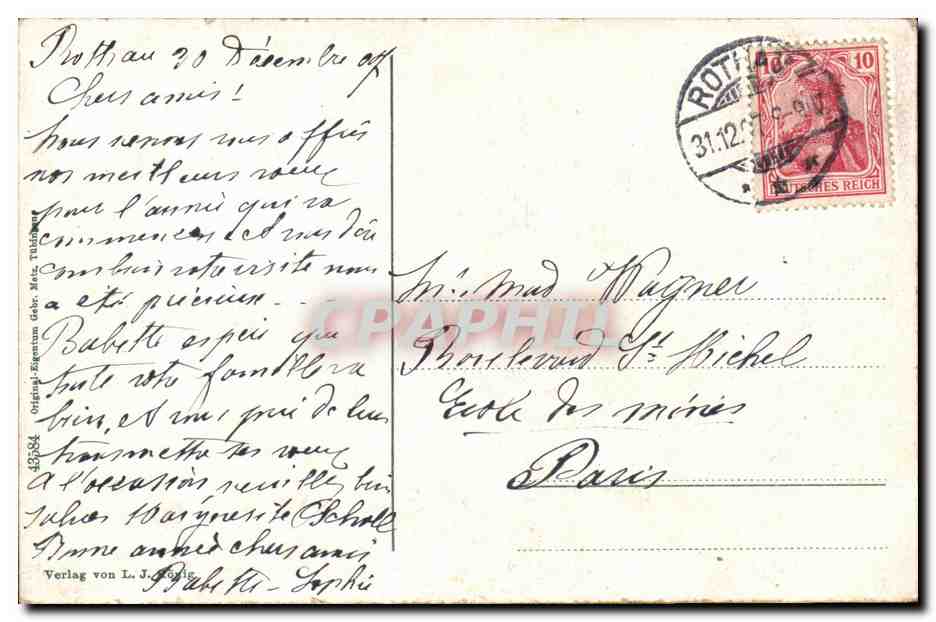 Rothau 30 Décembre 07
Chers amis!
nous venons vous offrir
nos meilleurs voeux
pour l'année qui va
commencer. Et vous dire
combien votre visite nous
a été précieux...
Babette espère que
toute votre famille va
bien, et vous prie de leur
transmettre ses voeux
A l'occasion veuillez bien
saluer Marguerite Scholl
Bonne année chers amis
Babette - Sophie
ROTHAU
31.12.07 8-9
10 10
DEUTSCHES REICH
Mr. Mad Wagner
Boulevard St. Michel
Ecole des mines
Paris
CPAPHIL
43584 Original-Eigentum Gebr. Metz, Tübingen
Verlag von L. J. König